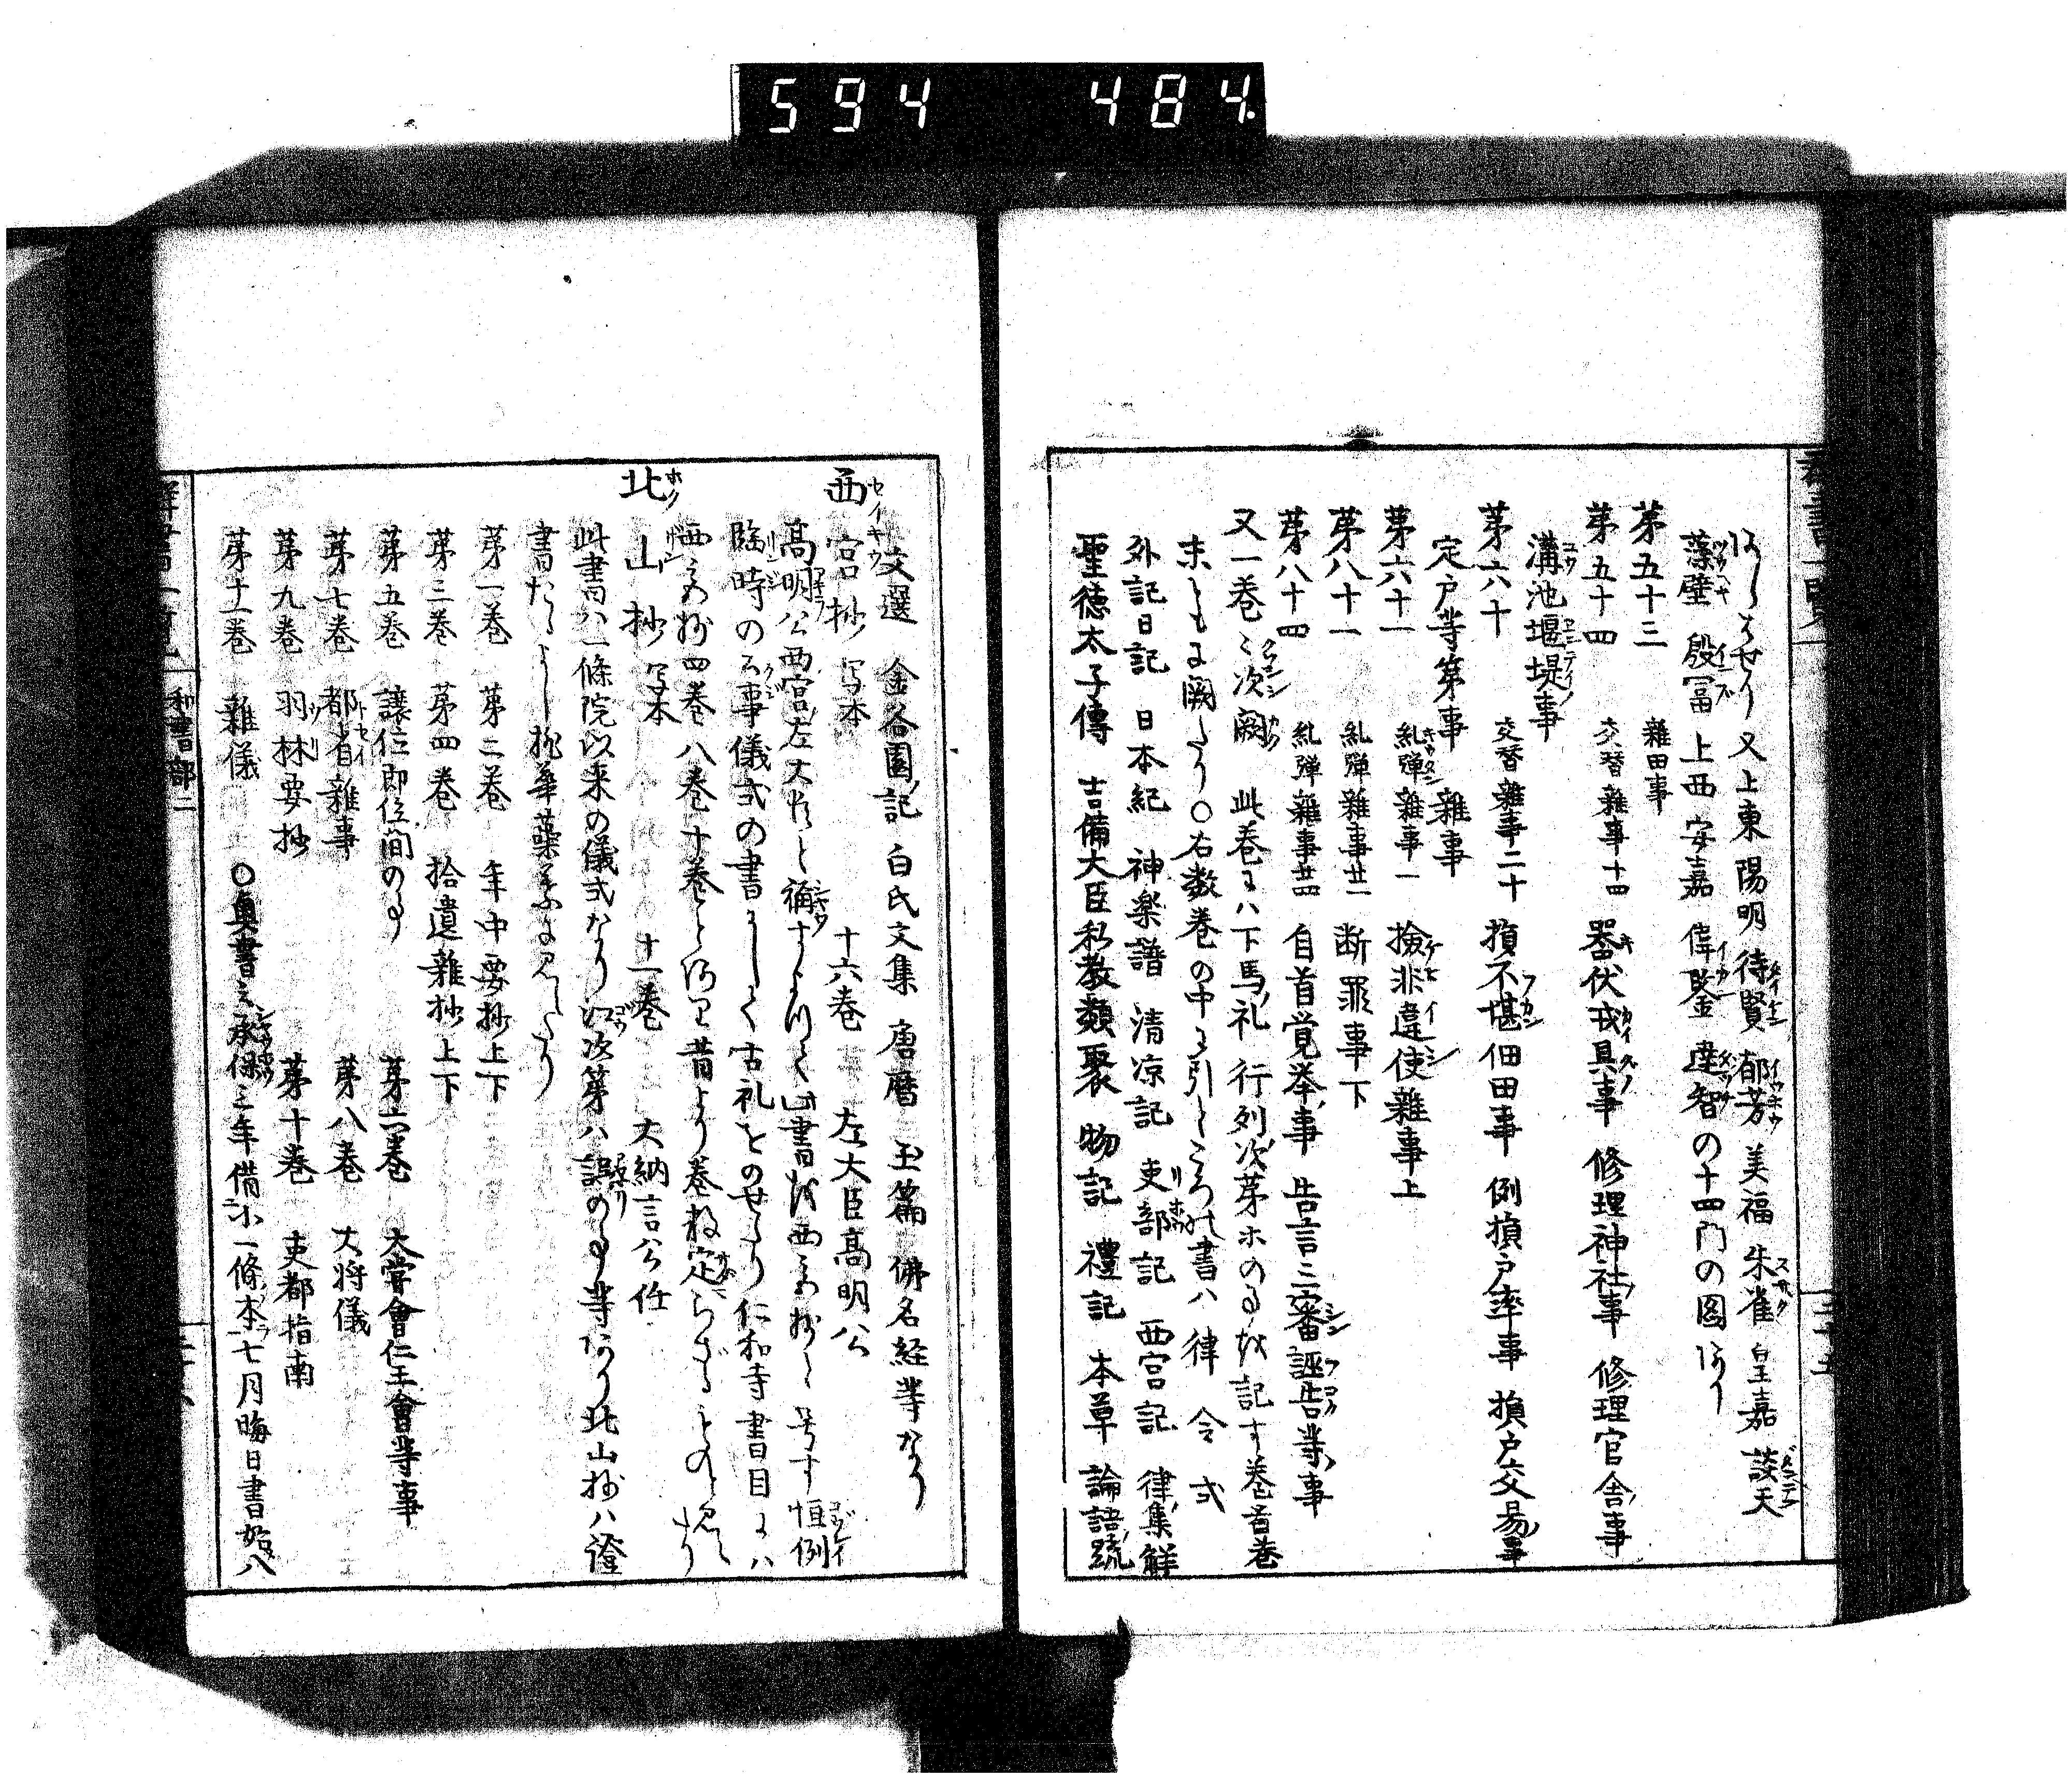 594 484.
又上東陽明待賢郁芳美福朱雀皇嘉談天
藻壁殷冨上西安嘉偉鑒達智の十四門の図あり
第五十三 雜田事
第五十四 交替雜事十四 器伏戎具事 修理神社事 修理官舎事
溝池堰堤事
第六十 交替雜事二十 損不堪佃田事 例損戸率事 損戸交易事
定戸等第事 雜事
第六十一 糺弾雜事一 撿非違使雜事上
第八十一 糺弾雜事廿一 断罪事下
第八十四 糺弾雜事廿四 自首覚挙事 告言三審誣告等事
又一巻 巻次闕 此巻ニハ下馬礼行列次第ホの事を記す巻首巻
末ともに闕たり〇右数巻の中に引ところの書ハ律 令 式
外記日記 日本紀 神楽譜 清凉記 吏部記 西宮記 律集解
聖徳太子傳 吉備大臣私教類聚 物記 禮記 本草 論語疏
文選 金谷園記 白氏文集 唐暦 玉篇 佛名経等なり
西宮抄 写本 十六巻 左大臣高明公
高明公西宮左大臣と称すよりて此書を西宮抄と号す恒例
臨時の公事儀式の書にして古礼をのせたり仁和寺書目にハ
西宮抄四巻八巻十巻とあり昔より巻数定らざるものと見えたり
北山抄 写本 十一巻 大納言公任
此書ハ一條院以来の儀式なり江次第ハ誤のる事等あり北山抄ハ證
書たるよし桃華蘂葉に見えたり
第一巻 第二巻 年中要抄上下
第三巻 第四巻 拾遺雜抄上下
第五巻 讓位即位間の事 第六巻 大甞會仁王會等事
第七巻 都省雜事 第八巻 大将儀
第九巻 羽林要抄 第十巻 吏都指南
第十一巻 雜儀 〇奥書云承保三年借小一條本七月晦日書始八
和書部二